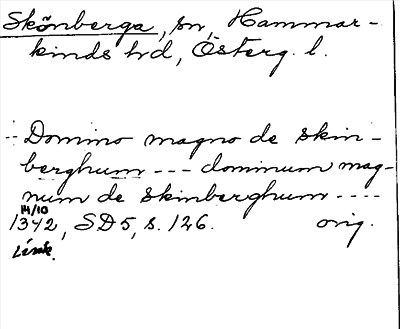 Skönberga, sn, Hammar-
kinds hd, Österg. l.
-- Domino magno de skin-
berghum --- dominum mag-
num de skinberghum ----
14/10
1342, SD5, s. 126. orig.
Link.